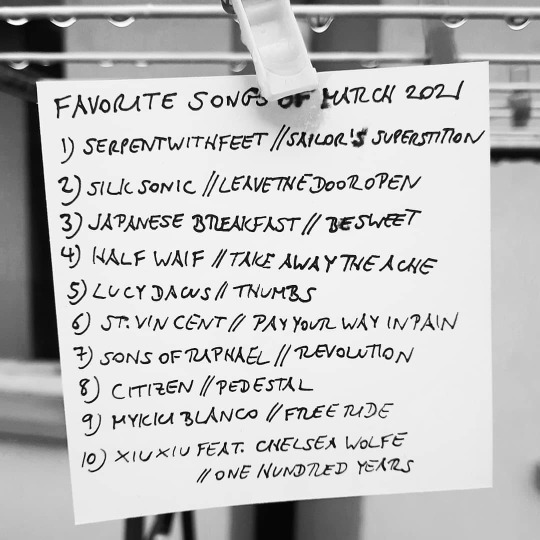 FAVORITE SONGS OF MARCH 2021
1) SERPENTWITHFEET // SAILOR'S SUPERSTITION
2) SILK SONIC // LEAVE THE DOOR OPEN
3) JAPANESE BREAKFAST // BE SWEET
4) HALF WAIF // TAKE AWAY THE ACHE
5) LUCY DACUS // THUMBS
6) ST. VINCENT // PAY YOUR WAY IN PAIN
7) SONS OF RAPHAEL // REVOLUTION
8) CITIZEN // PEDESTAL
9) MYKKI BLANCO // FREE RIDE
10) XIU XIU FEAT. CHELSEA WOLFE
// ONE HUNDRED YEARS